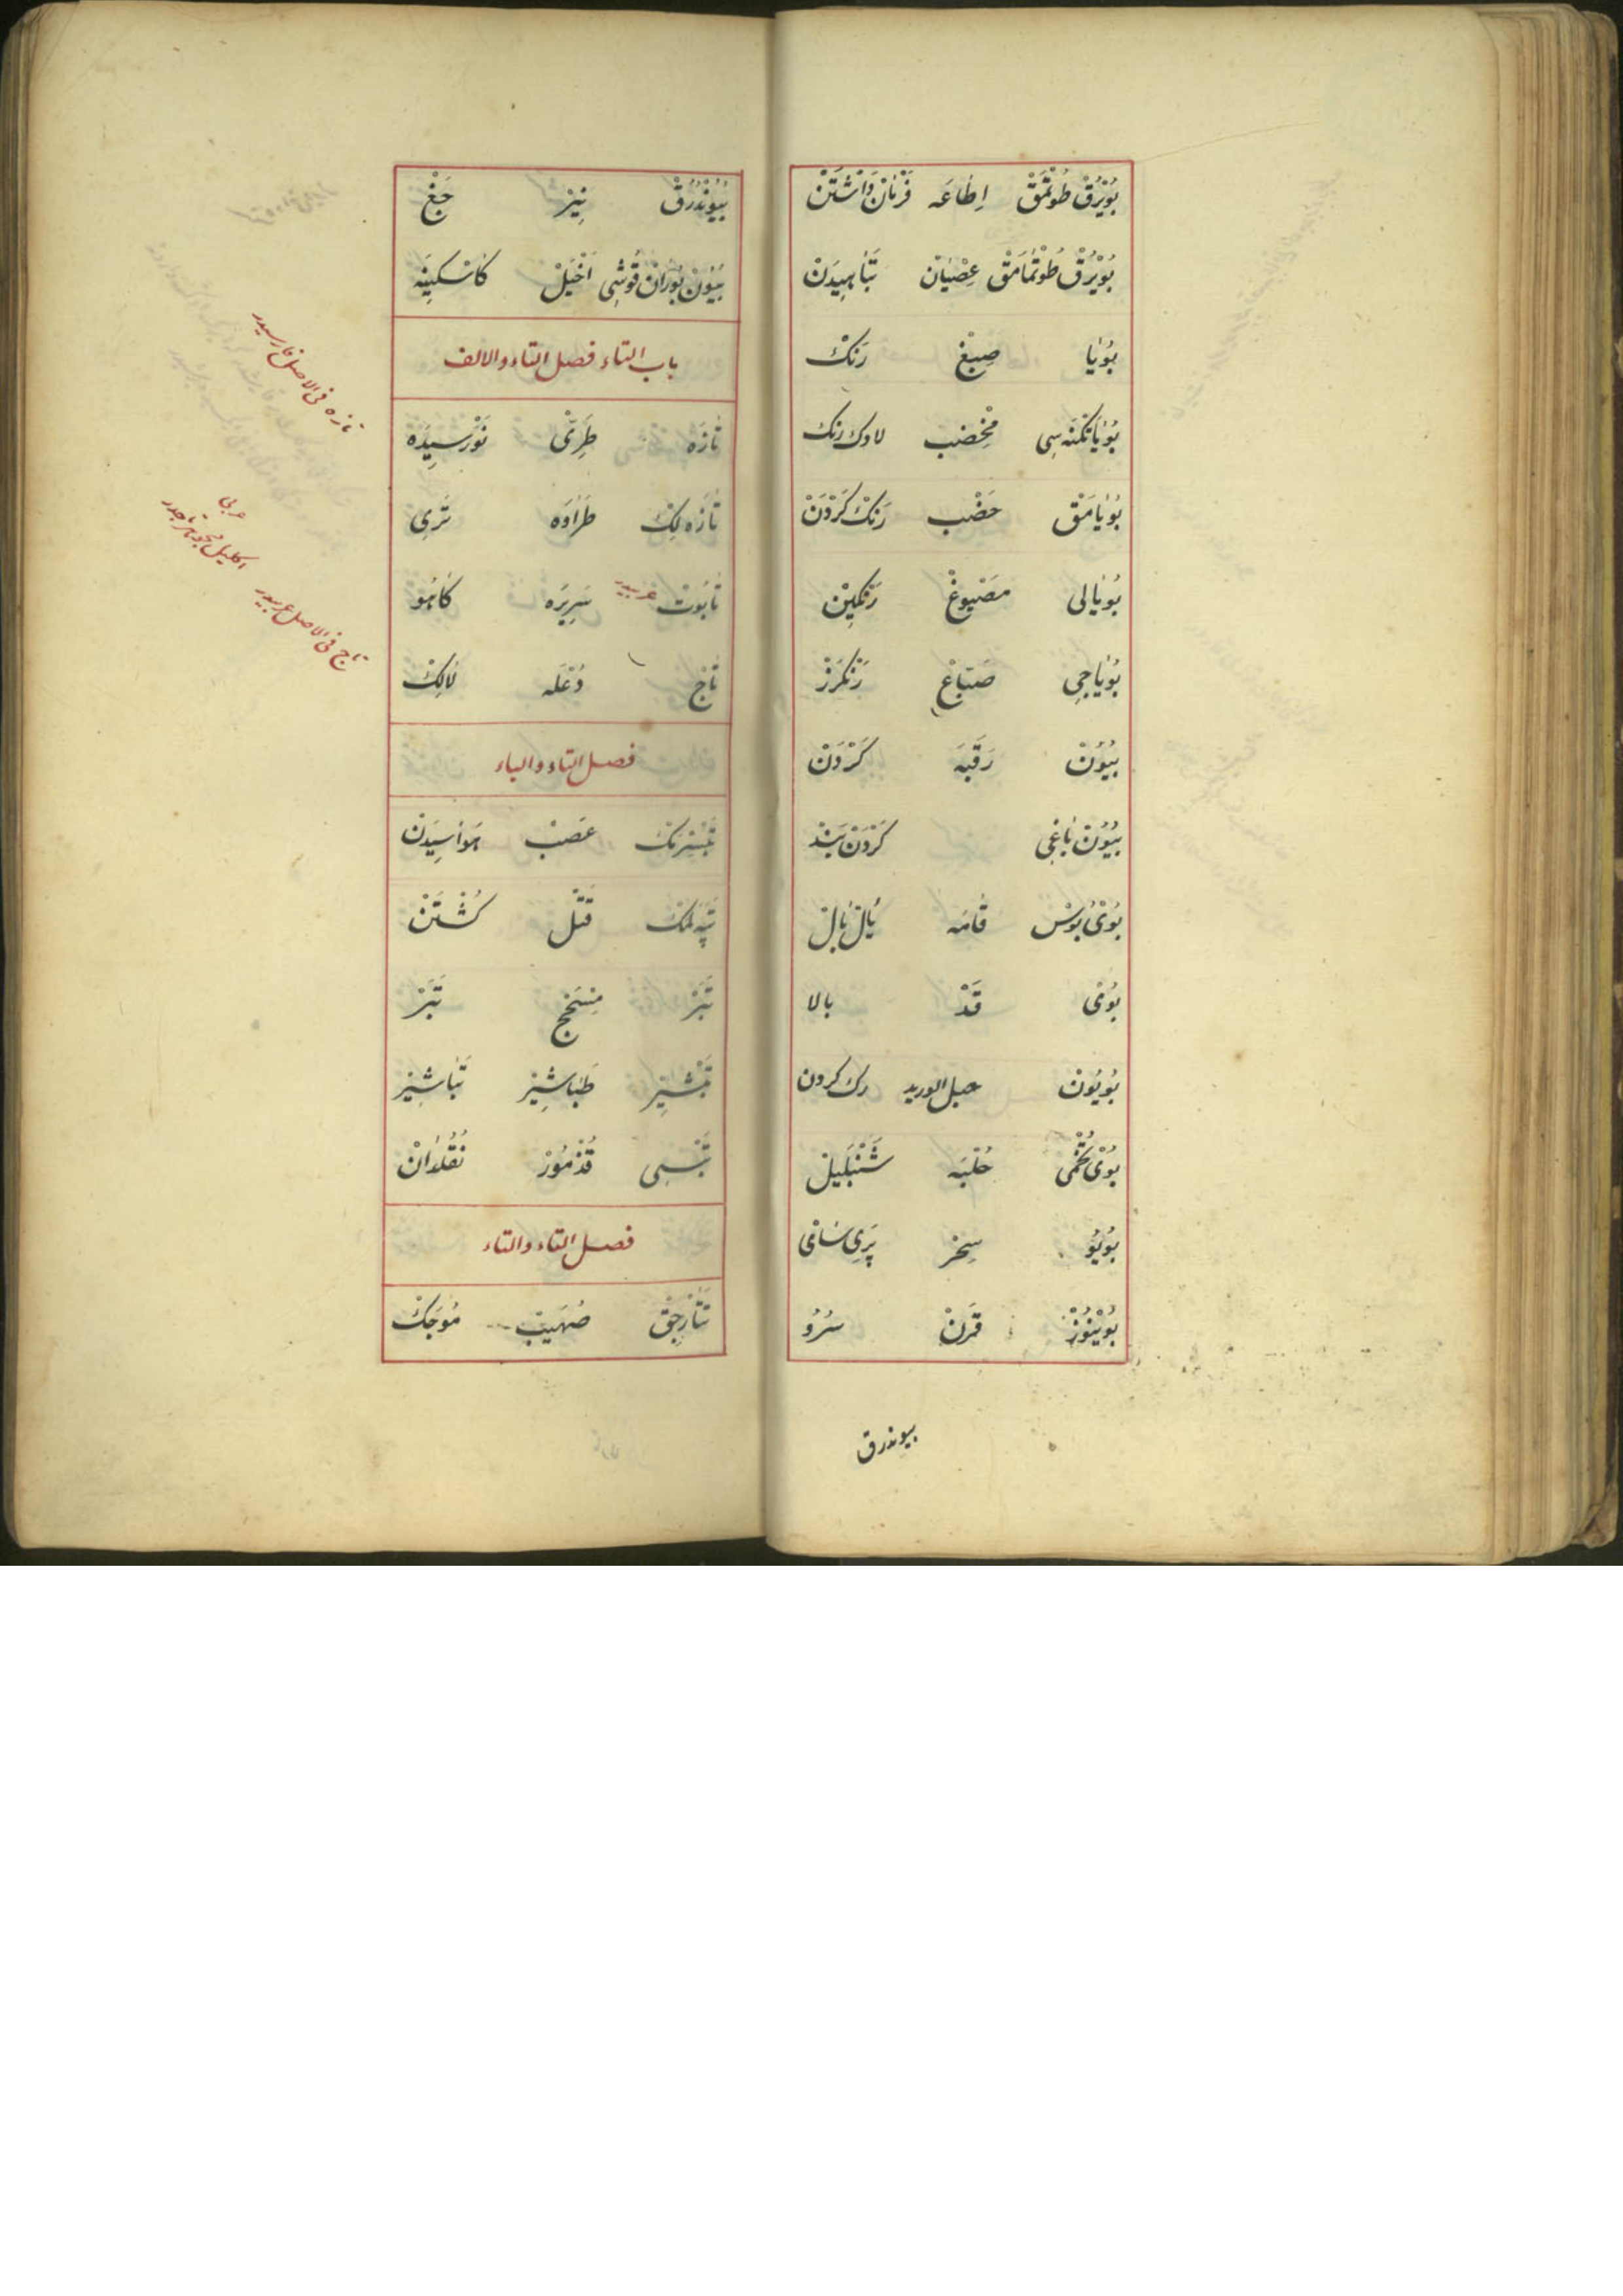 بُوْيْرُقْ طُوتْمَقْ اِطَاعَه فَرْمَانْ دَاشْتَنْ
بُوْيْرُقْ طُوتْمَامَقْ عِصْيَانْ تَبَاهِيدَنْ
بُويَا صِبْغْ رَنْكْ
بُويَا تَكْنَه سِى مِخْضب لاوك رنك
بُويَامَقْ خَضْب رَنْكْ كَرْدَنْ
بُويَالى مَصْبُوغْ رَنْكِينْ
بُويَاجِى صَبَّاغْ رَنْكْرَزْ
بُيُونْ رَقَبَه كَرْدَنْ
بُيُونْ بَاغِى كَرْدَنْ بَنْدْ
بُوىْ بُوسْ قَامَه يَالْ بَالْ
بُوىْ قَدْ بالا
بُويُونْ حبل الوريد رك كردن
بُوىْ تُخْمِى حُلْبَه شَنْبَلِيلْ
بُويُو سِحْر پَرِى سَاىْ
بُوينُوزْ قَرَنْ سُرُو
بيوندرق
بُيُونْدُرُقْ نِيْر جَغْ
بُيُونْ بُورَانْ قُوشِى اَخْيَلْ كَاسْكِينَه
باب التاء فصل التاء والالف
تَازَه طَرِىّْ نَوْرَسِيدَه
تَازَه لِكْ طَرَاوَه تَرِى
تَابُوتْ عربيدر سَرِيرَه كَاهُو
تَاجْ دُعْلَه لَالِكْ
فصل التاء والباء
عَصَبْ هَوَاسِيدَنْ
تَپَه لَمَكْ قَتْل كُشْتَنْ
تَبَرْ تَبَرْ
تَبْشِير طَبَاشِير تَبَاشِير
تَبْسِى قُذْمُورْ نُقُلْدَانْ
فصل التاء والتاء
تَتَارْجِقْ صُهَيْبْ مُوجَكْ
تازه فى الاصل فارسيدر
عربى
تاج فى الاصل عربيدر